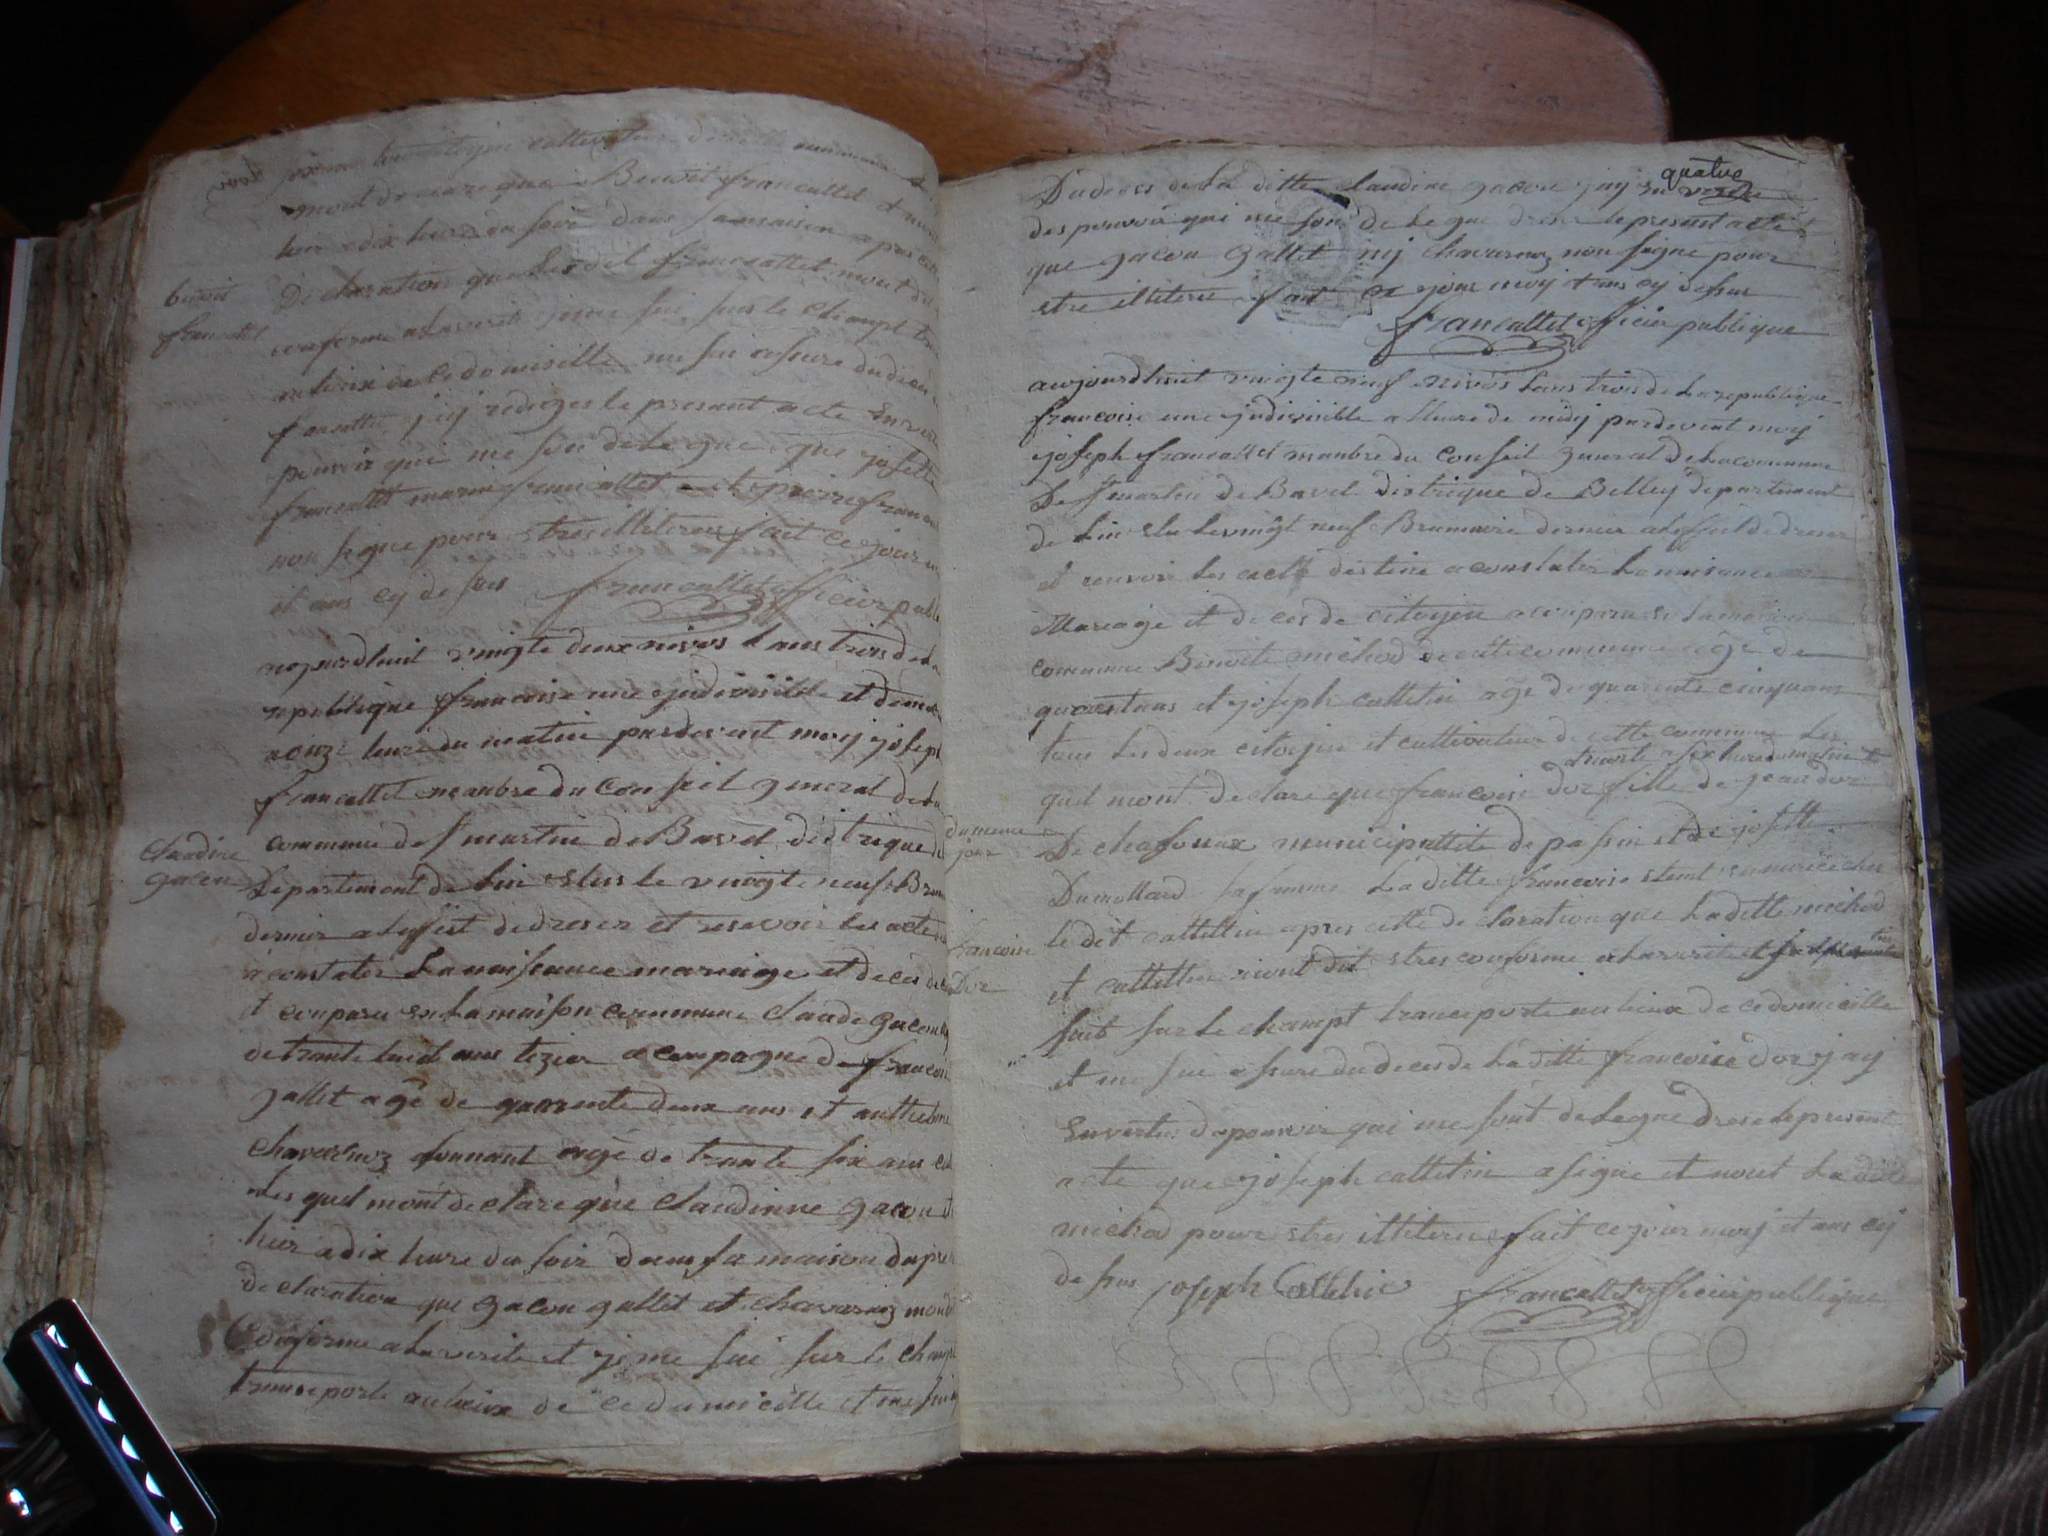 citoyen cultivateur de cette commune
mont declare que Benoit francallet et mort
hier a dix heure du soir dans sa maison apres cette
benoit
francallet
De claration que les dit francallet mont dit
conforme a la verite je me sui sur le champt
au lieux de ce domicille me sui assure du deces
francallet j'ay rediges le present acte En vertu
pouvoir qui me son delegue que josette
francallet marie francallet et pierre francallet
non signe pour estres illiterer fait ce jour
et ans cy de sus francallet officier public
aujourdhuit vingte deux nivos Lans trois de la
republique francoise une indivisible et demie
a onze heure du matin pardevant moy joseph
francallet menbre du conseil general de la
Claudine
gacon
commune de st martin de Bavet districque de
Departement de Lin Elus le vingte neufs Brumaire
dernier a leffest de dreser et resevoir les acte
a constater La naissance mariage et deces de
et conparu en La maison commune claude gacon
de trante huit ans tezier acompagne de francois
gallet age de quarente deux ans et anthelme
chavarnoz age de trante six ans
Les quel mont declare que claudinne gacon
hier a dix heure du soir dans sa maison dapres
declaration que gacon gallet et chavarnoz mont
Conforme a La verite et je me sui sur le champt
transeporte au lieux de ce damicille et me sui
quatre
Du deces de La ditte claudine gacon j'ay En vertu
des pouvoir qui me son delegue drese le present acte
que gacon gallet ny chavarnoz non signe pour
estre illiterer fait ce jour moy et ans cy desus
francallet officier publique
aujourdhuit vingte neuf nivos Lans trois de La republique
francoise une indivisible a lheure de midy pardevant moy
joseph francallet menbre du conseil general de La commune
De st martin de Bavet districque de Belley departement
de Lin elu le vingt neuf Brumaire dernier a leffest de dreser
et resevoir les acte destine a constater La naisance
Mariage et deces de citoyen a conparu en La maison
commune Benoite michod de cette commune age de
quarent ans et joseph cattelin age de quarente cinq ans
tous Les deux citoyen et cultivateur de cette commune Les
morte a six heure du matin
quel mont declare que francoise Dor fille de jean dor
du meme
jour
De chafoux municipallite de passin et de josette
Dumollard sa femme La ditte francoise etent en nourice ches
francoise
Dor
le dit cattellin apres cette declaration que La ditte michod
et cattellin mont dit estres conforme a La verite
suit sur le champt transeporte au lieux de ce domicille
et me sui assure du deces de La ditte francoise Dor j'ay
En vertu de pouvoir qui me sont delegue drese le present
acte que joseph cattelin a signe et nont La ditte
michod pour estres illiterer fait ce jour moy et ans cy
de sus joseph Cattelin francallet officier publique